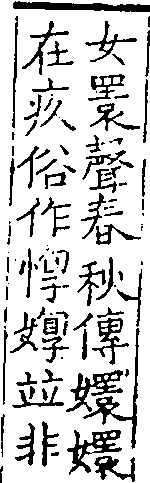 女睘聲春秋傳嬛嬛
在疚俗作惸㛮竝非